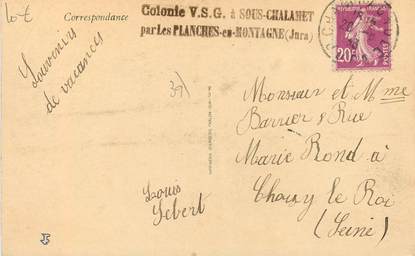 Lot
Correspondance
Colonie V.S.G. à SOUS-CHALAMET
par Les PLANCHES-en-MONTAGNE (Jura)
20c
POSTES
Souvenirs
de vacances
Louis
Monsieur et Mme
Barrier 8 Rue
Marie Rond à
Choisy le Roi
(Seine)